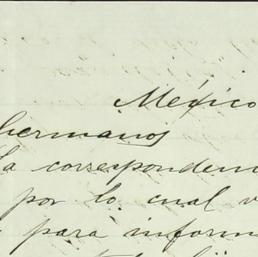 México
hermanos
La corresponden
por lo cual v
para inform